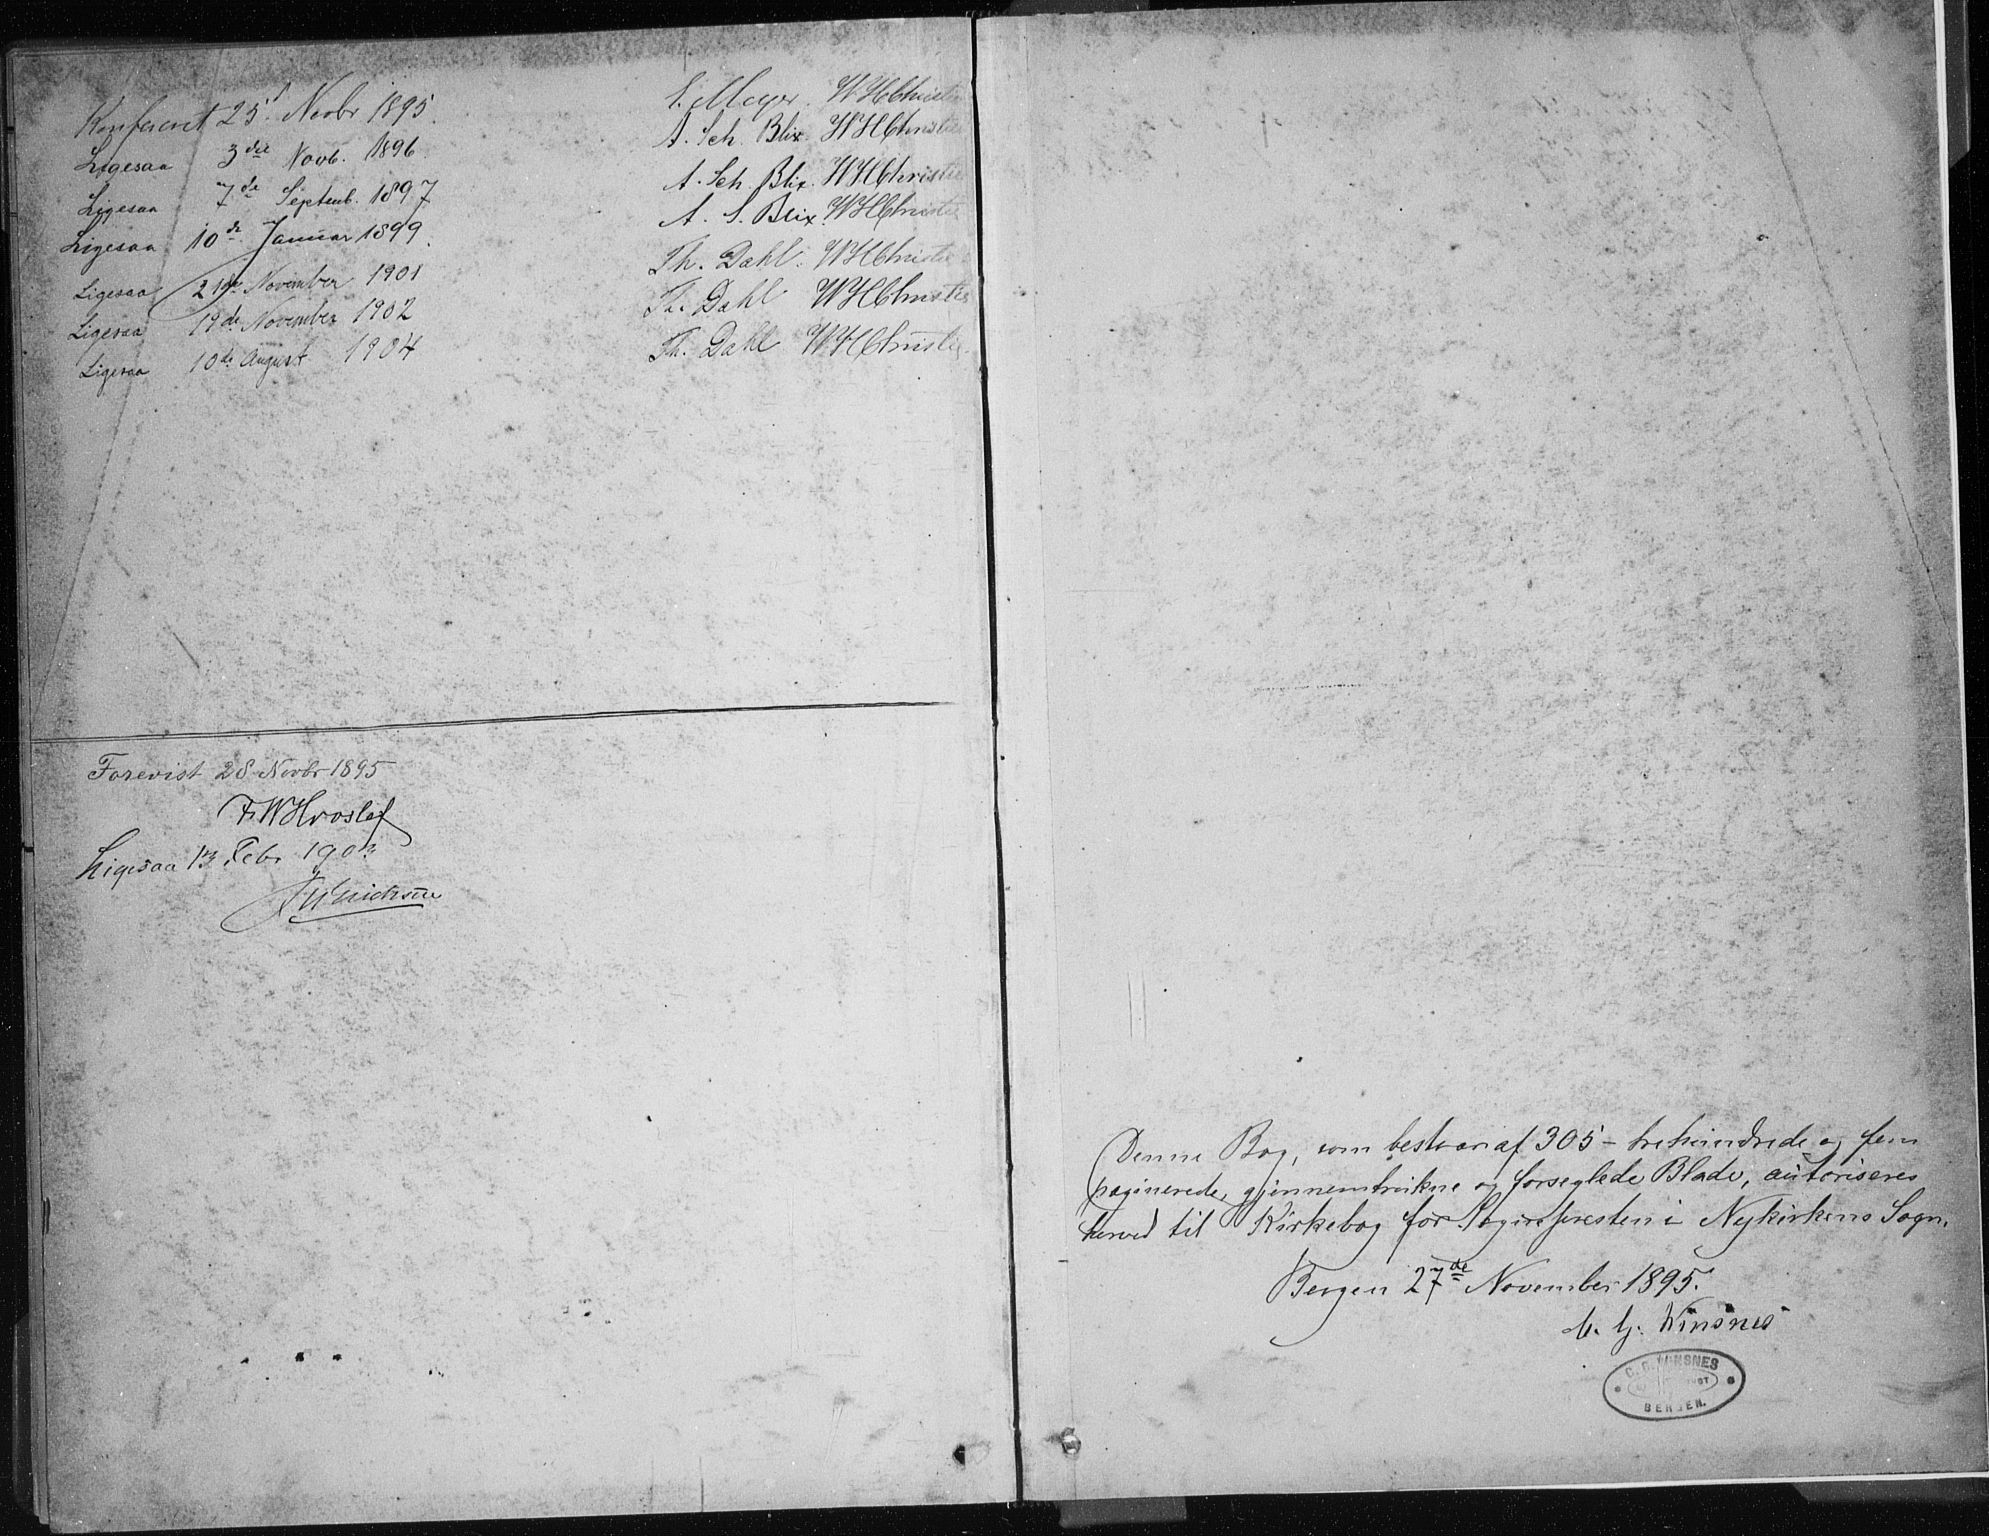 Konfereret 25 Novbr 1895. S. Meyer. WHChristie
Ligesaa 3die Novb. 1896. A. Sch. Blix. WHChristie
Ligesaa 7de Septemb. 1897 A. Sch. Blix. WHChristie
Ligesaa 10de Januar 1899. A. S. Blix. WHChristie
Ligesaa 21de November 1901 Th. Dahl. WHChristie
Ligesaa 19de November 1902 Th. Dahl WHChristie
Ligesaa 10de August 1904 Th. Dahl WHChristie
Forevist 28 Novbr 1895
FWHvoslef
Ligesaa 13 Febr 1903
Denne Bog, som bestaar af 305 – trehundrede og fem
paginerede, gjennemtrukne og forseglede Blade, autoriseres
herved til Kirkebog for Sognepresten i Nykirkens Sogn.
Bergen 27de November 1895.
C. G. Winsnes
C. G. WINSNES
BERGEN.